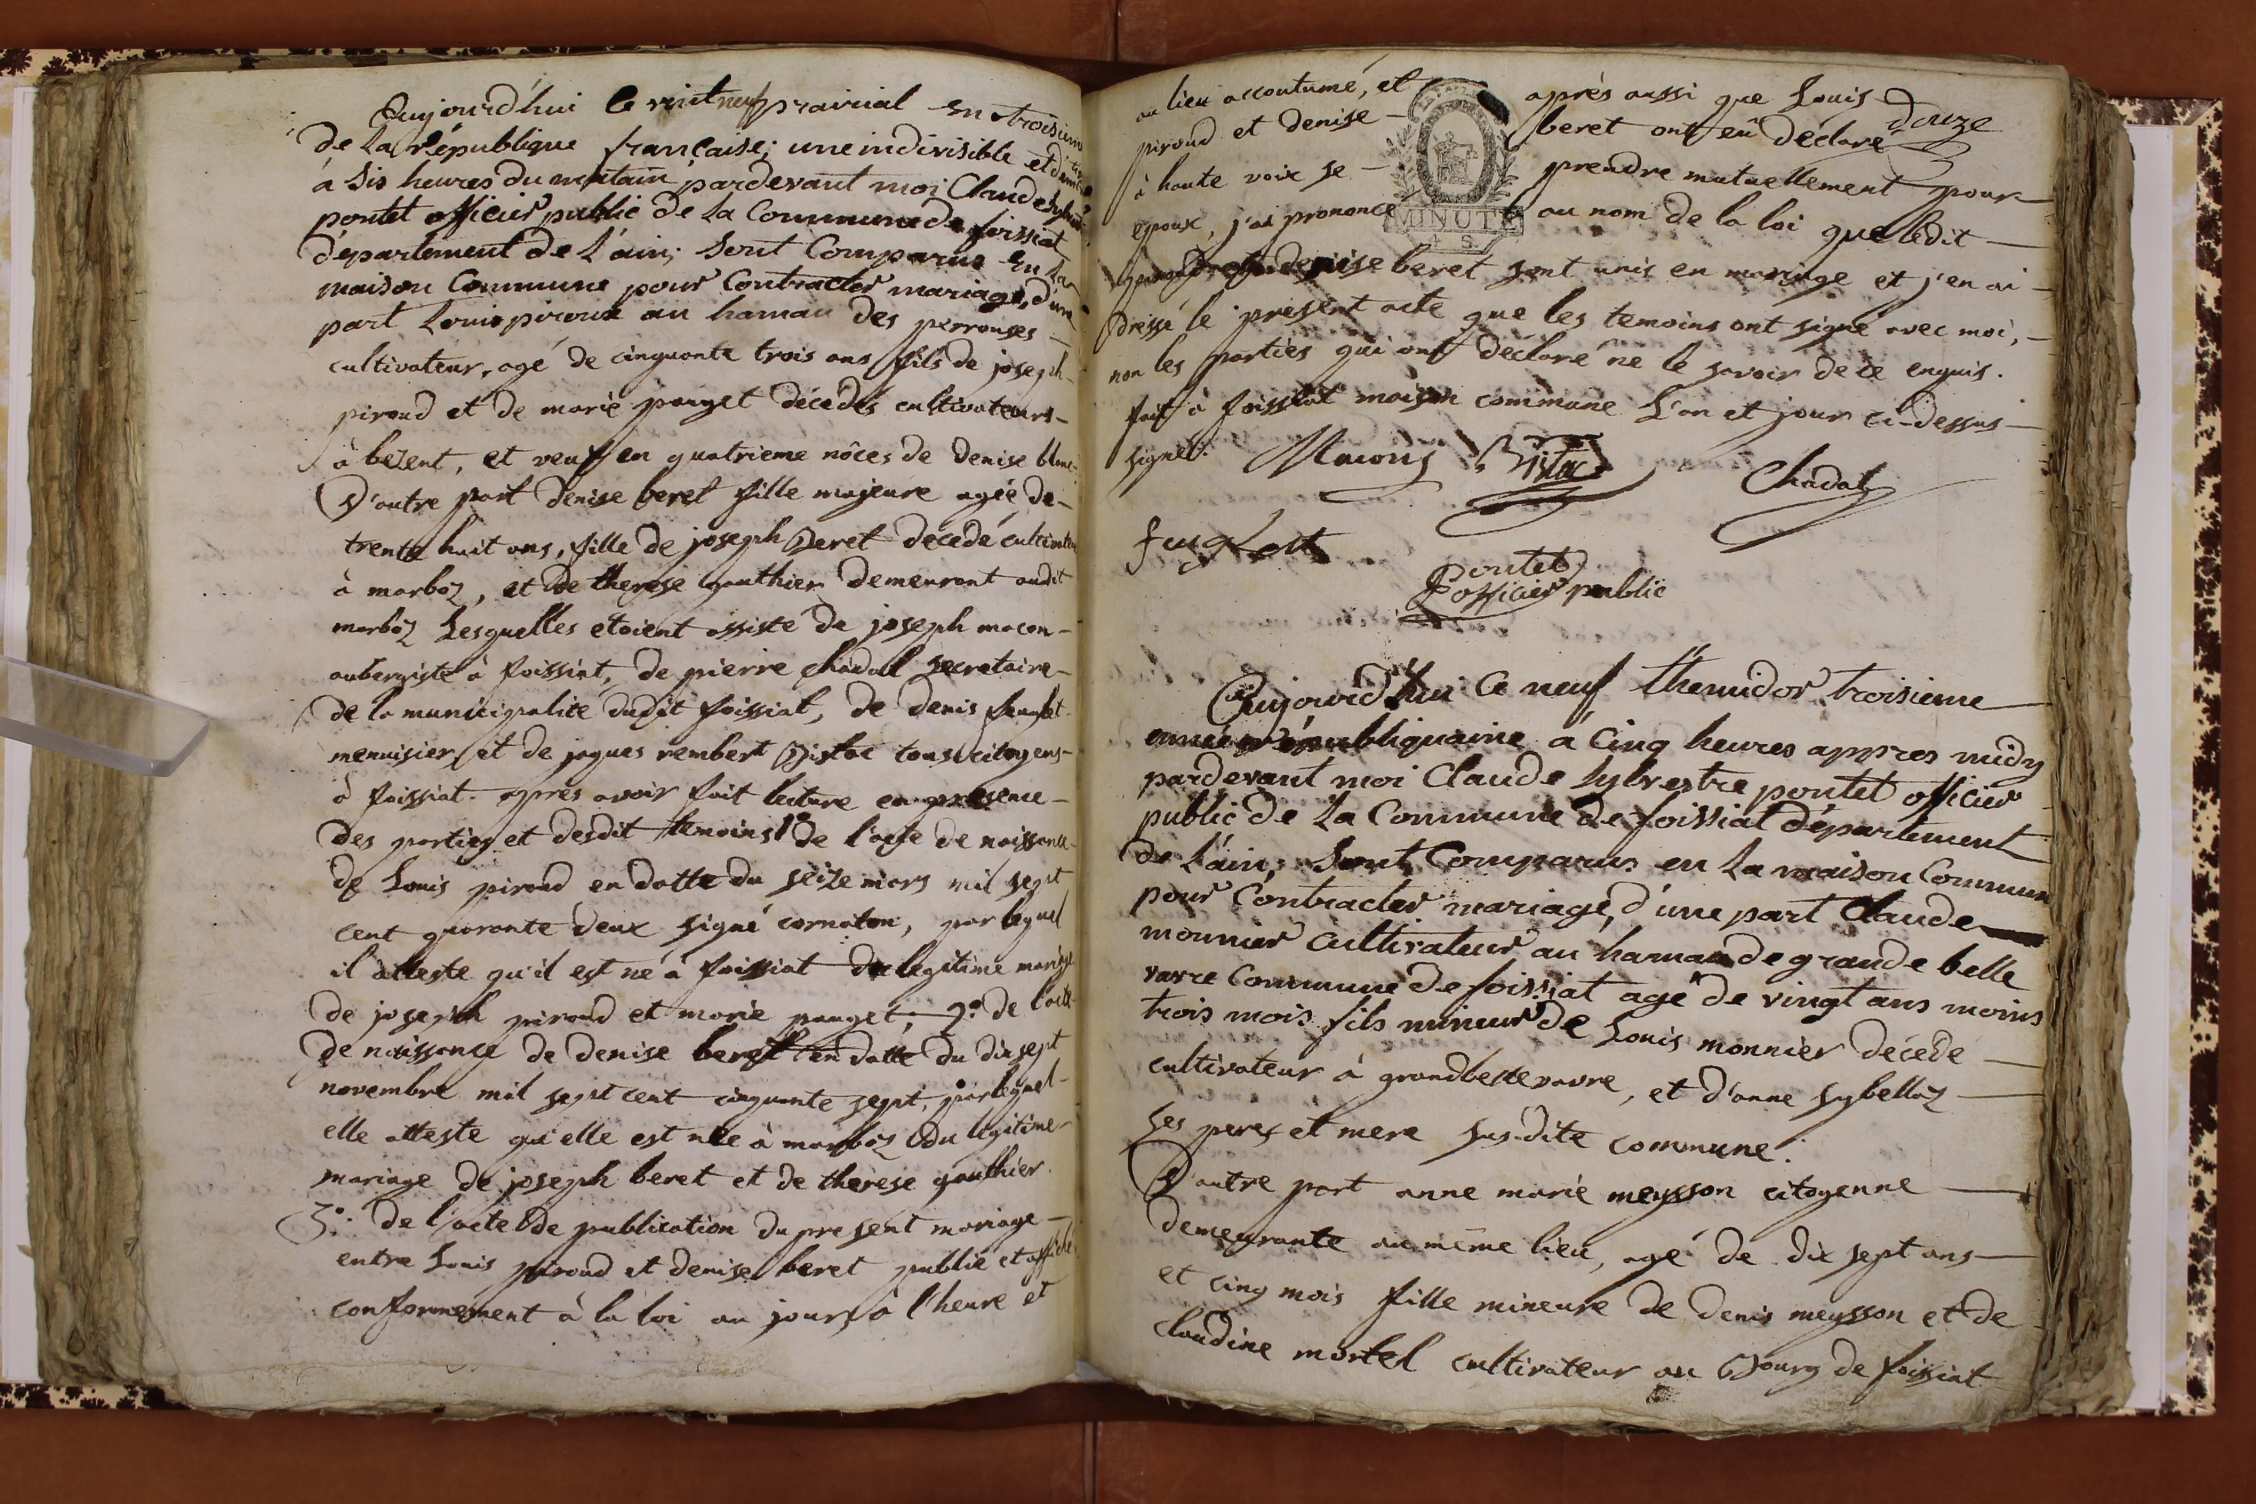 Aujourd'hui le vint neuf prairial en troisieme
de la république française; une indivisible et
à sis heures du mattain pardevant moi Claude Sylvestre
pontet officier public de la Commune de foissiat
département de l'ain; sont Comparus en la
maison Commune pour Contracter mariage, d'une
part Louis piroud au hamau des perrouses
cultivateur, agé de cinquante trois ans fils de joseph
piroud et de marie pauget décédés cultivateurs
à bezent, et veuf en quatrieme nôces de denise blanc
D'autre part denise beret fille majeure agée de
trente huit ans, fille de joseph beret décédé cultivateur
à marboz, et de therese gauthier demeurant audit
marboz Lesquelles etoient assisté de joseph macon
aubergiste à foissiat, de pierre chadal secretaire
de la municipalité dudit foissiat, de denis
menuisier, et de jaques rembert Distac tous citoyens
à foissiat. apres avoir fait lecture en presence
des parties et desdit temoins 1º de l'acte de naissance
de Louis piroud en datte du seize mars mil sept
cent quarante deux signé cornaton, par lequel
il atteste qu'il est né à foissiat du legitime mariage
de joseph piroud et marie pauget; 2º. de l'acte
de naissance de denise beret en datte du dix sept
novembre mil sept cent cinquante sept, par lequel
elle atteste qu'elle est née à marboz du legitime
mariage de joseph beret et de therese gauthier.
3º. de l'acte de publication du present mariage
entre Louis piroud et denise beret publié et affiché
conformement à la loi au jour, à l'heure et
au lieu accoutumé, et après aussi que Louis
douze
piroud et denise beret ont eû déclaré
à haute voix se prendre mutuellement pour
epoux, j'ai prononcé au nom de la loi que ledit
MINUTE
piroud et denise beret sont unis en mariage et j'en ai
dressé le present acte que les temoins ont signé avec moi,
non les parties qui ont déclaré ne le savoir de ce enquis.
fait à foissiat maison commune L'an et jour ci-dessus
signé. Macony Distac Chadal
Pontet
officier public
Aujourd'hui Ce neuf themidor troisieme
année républiquaine à Cinq heures appres midy
pardevant moi Claude Sylvestre pontet officier
public de La Commune de foissiat département
de L'ain; Sont Comparus en La maison Commune
pour Contracter mariage, d'une part Claude
monnier Cultivateur au hamau de grande belle
vavre Commune de foissiat agé de vingt ans moins
trois mois fils mineur de Louis monnier décédé
cultivateur à grandbellevavre, et d'anne sybellaz
ses peres et mere sus-dite commune.
D'autre part anne marie meysson citoyenne
demeurante au même lieu, agé de dix sept ans
et cinq mois fille mineure de denis meysson et de
claudine mortel cultivateur au Bourg de foissiat